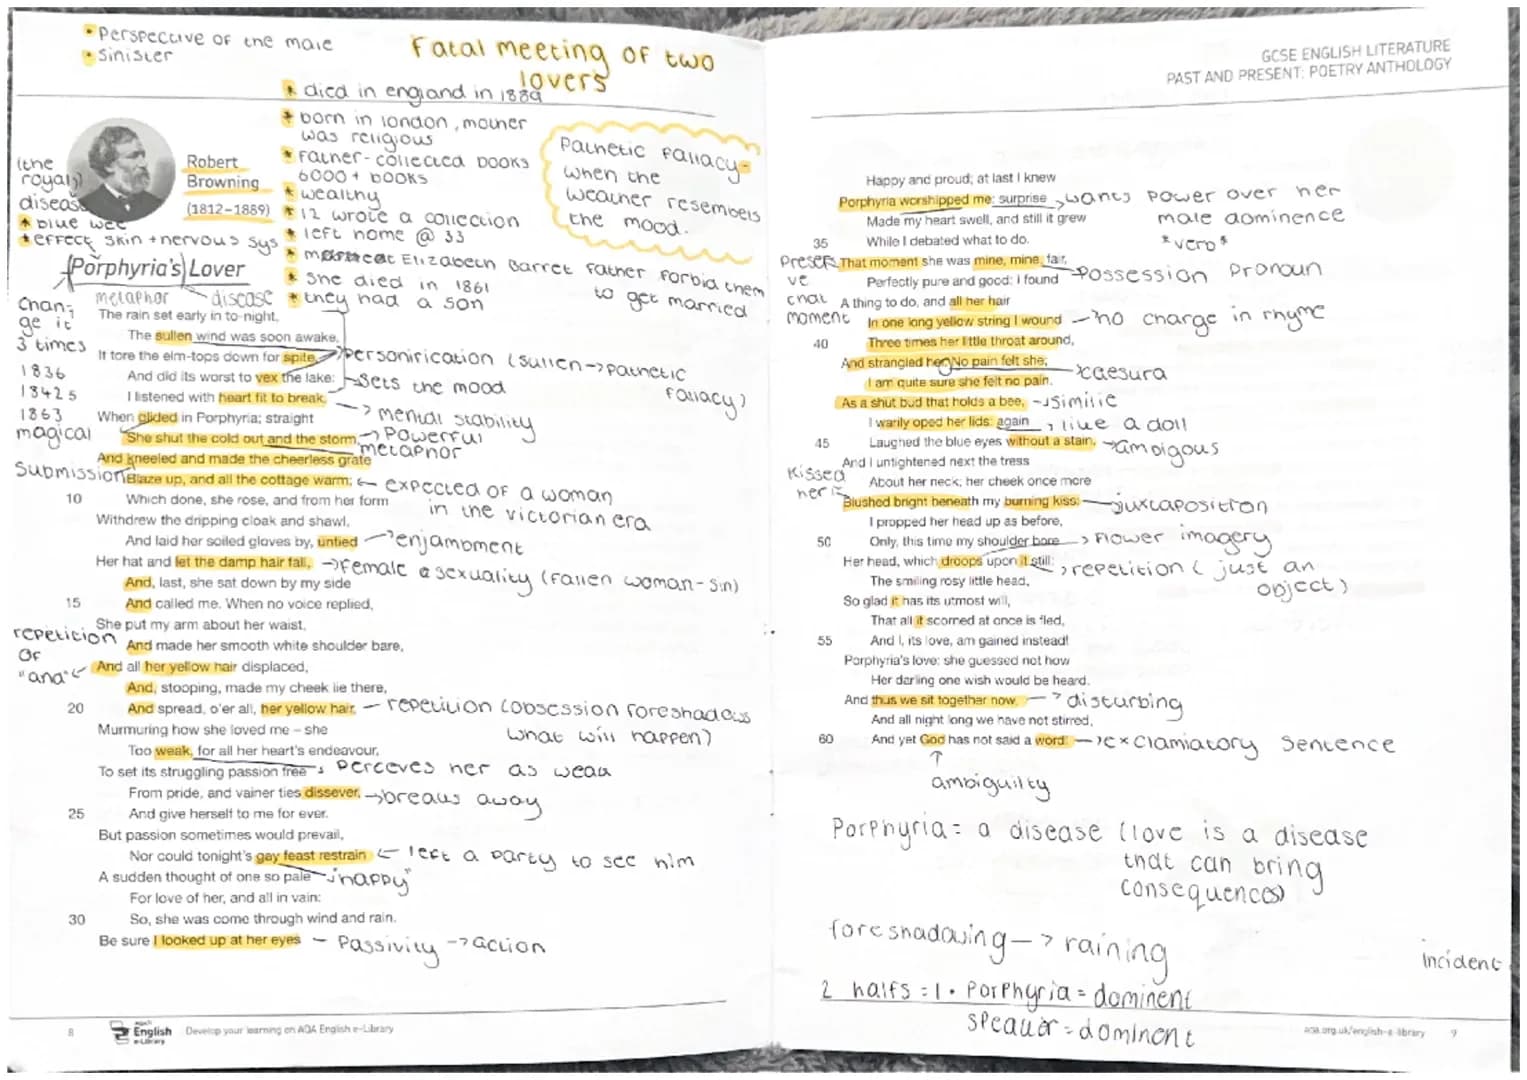 * Perspective of the male
* Sinister
Fatal meeting of two
lovers
* died in england in 1889
* born in london, mother
was religious
* Father- collected books
6000 + books
* wealthy
* 12 wrote a collection
* left home @ 33
* Elizabeth Barret Father forbid them
to get married
* She died in 1861
* they had a son
Pathetic Fallacy-
when the
weather resembels
the mood.
(the
royals)
disease
* blue wee
* effect skin + nervous sys
Robert
Browning
(1812–1889)
(Porphyria's) Lover
metaphor
disease
chan-
ge it
3 times
1836
18425
1863
magical
The rain set early in to-night,
The sullen wind was soon awake,
It tore the elm-tops down for spite, →personification (sullen→pathetic
fallacy)
And did its worst to vex the lake: →sets the mood
I listened with heart fit to break, → mental stability
When glided in Porphyria; straight
She shut the cold out and the storm, → Powerful
metaphor
And kneeled and made the cheerless grate
Submission
Blaze up, and all the cottage warm; ← expected of a woman
in the victorian era
10 Which done, she rose, and from her form
Withdrew the dripping cloak and shawl,
And laid her soiled gloves by, untied →enjambment
Her hat and let the damp hair fall, →female asexuality (fallen woman-sin)
And, last, she sat down by my side
15 And called me. When no voice replied,
She put my arm about her waist,
repetition
of
"and"←
And made her smooth white shoulder bare,
And all her yellow hair displaced,
And, stooping, made my cheek lie there,
20 And spread, o'er all, her yellow hair, — repetition (obsession foreshadows
what will happen)
Murmuring how she loved me – she
Too weak, for all her heart's endeavour,
To set its struggling passion free → perceves her as weak
From pride, and vainer ties dissever, →breaks away
25 And give herself to me for ever.
But passion sometimes would prevail,
Nor could tonight's gay feast restrain ← left a party to see him
A sudden thought of one so pale "happy"
For love of her, and all in vain:
30 So, she was come through wind and rain.
Be sure I looked up at her eyes – Passivity → action
8
AQA
English
e-Library
Develop your learning on AQA English e-Library
GCSE ENGLISH LITERATURE
PAST AND PRESENT: POETRY ANTHOLOGY
Happy and proud; at last I knew
Porphyria worshipped me: surprise →wants power over her
male dominence
Made my heart swell, and still it grew
35 While I debated what to do. *verb*
preser
ve
that
moment
That moment she was mine, mine, fair, →possession pronoun
Perfectly pure and good: I found
A thing to do, and all her hair
In one long yellow string I wound →no charge in rhyme
40 Three times her little throat around,
And strangled her. No pain felt she;
caesura
I am quite sure she felt no pain.
As a shut bud that holds a bee, →similie
I warily oped her lids: again → like a doll
45 Laughed the blue eyes without a stain. →ambigous
And I untightened next the tress
About her neck; her cheek once more
Kissed
her
Blushed bright beneath my burning kiss: →juxtaposition
I propped her head up as before,
50 Only, this time my shoulder bore → Flower imagery
Her head, which droops upon it still: →repetition ( just an
object)
The smiling rosy little head,
So glad it has its utmost will,
That all it scorned at once is fled,
55 And I, its love, am gained instead!
Porphyria's love: she guessed not how
Her darling one wish would be heard.
And thus we sit together now, → disturbing
And all night long we have not stirred,
60 And yet God has not said a word! →exclamiatory sentence
↑
ambiguilty
Porphyria= a disease (love is a disease
that can bring
consequences)
foreshadowing—> raining
incident
2 halfs = 1 • Porphyria = dominent
speaker = dominent
aqa.org.uk/english-e-library 9